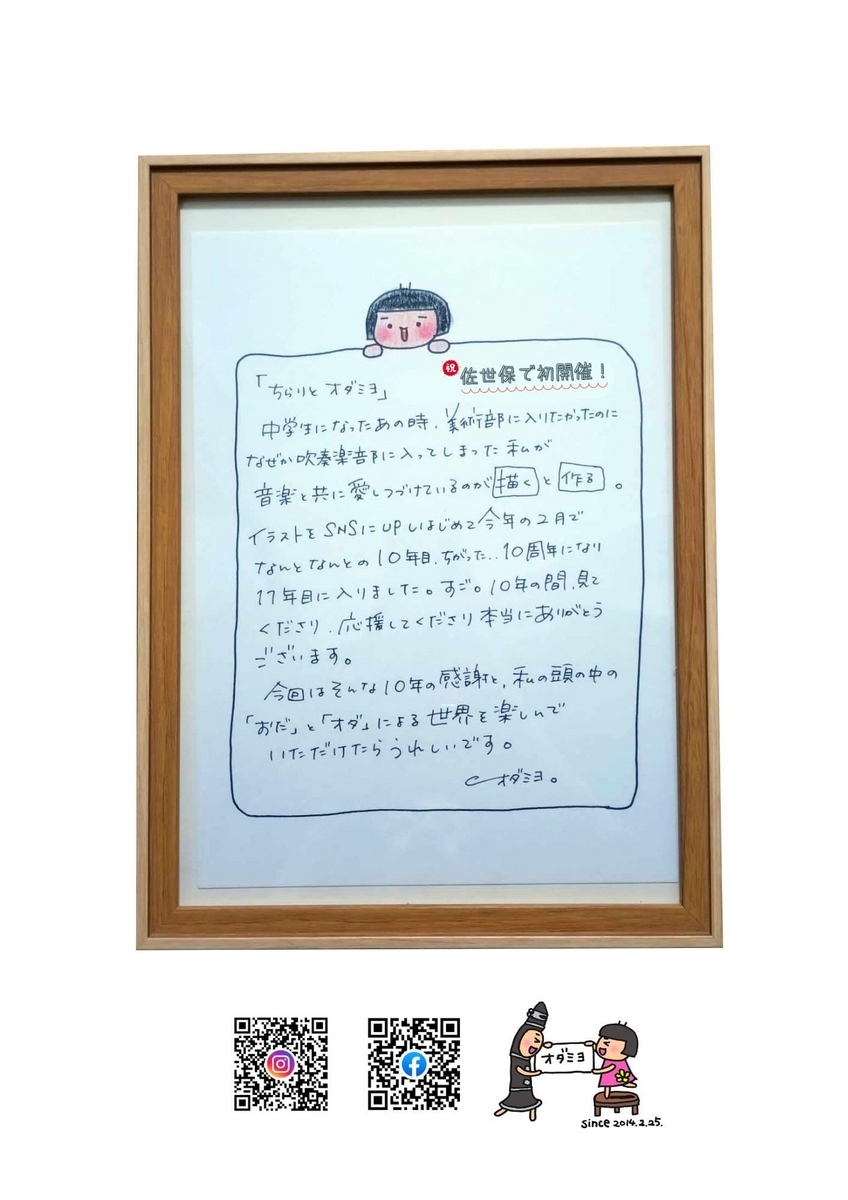 祝 佐世保で初開催！
「ちらりと オダミヨ」
中学生になったあの時、美術部に入りたかったのに
なぜか吹奏楽部に入ってしまった 私が
音楽と共に愛しつづけているのが 描く と 作る 。
イラストを SNSに UPしはじめて 今年の2月で
なんとなんとの 10年目、ちがった‥10周年になり
11年目に入りました。すご。10年の間、見て
くださり、応援してくださり 本当にありがとう
ございます。
今回はそんな10年の感謝と、私の頭の中の
「おだ」と「オダ」による 世界を楽しんで
いただけたらうれしいです。
オダミヨ。
オダミヨ
since 2014.2.25.